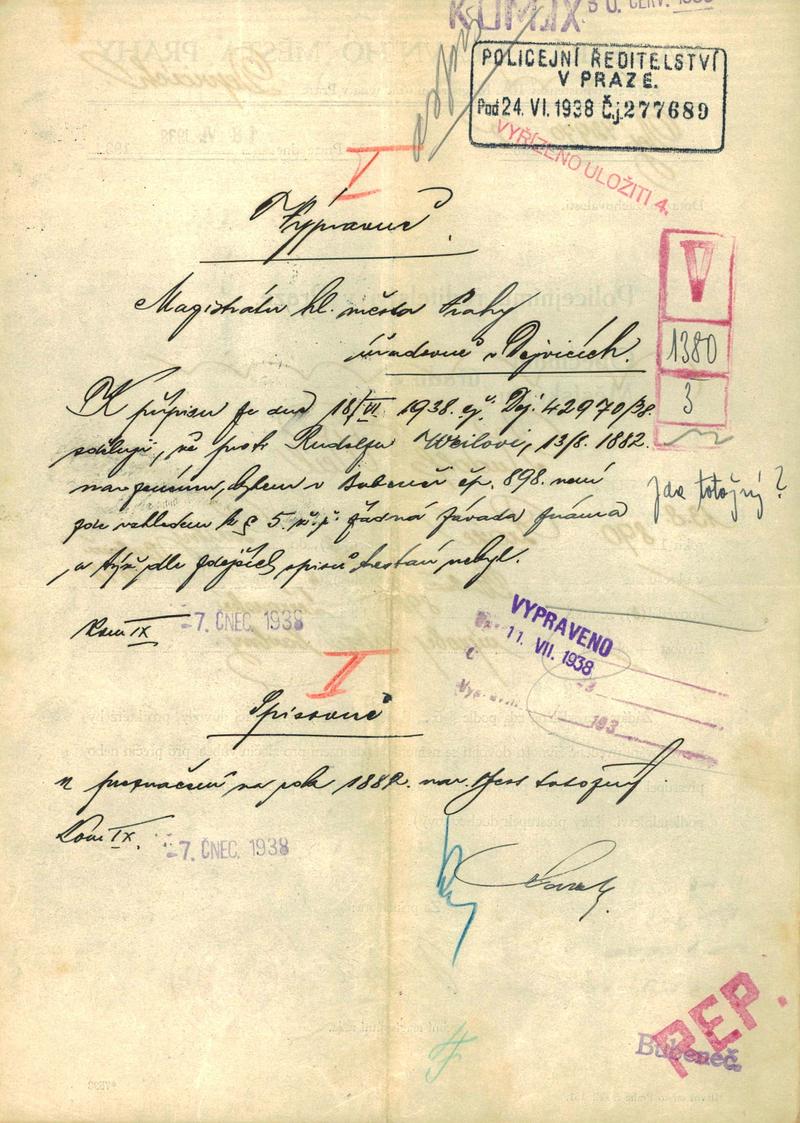 KOM. IX
POLICEJNÍ ŘEDITELSTVÍ
V PRAZE.
Pod 24. VI. 1938 Č.j. 277689
VYŘÍZENO ULOŽITI 4.
I
Výpravně
V
1380
3
Magistrátu hl. města Prahy
úřadovně v Dejvicích.
K přípisu ze dne 18/VI. 1938. čj. Dej. 42970/38.
sděluji, že proti Rudolfu Weilovi, 13/8. 1882.
narozenému, bytem v Bubenči čp. 898. není
zde vzhledem k § 5. ž.ř. žádná závada známa
a týž dle zdejších spisů trestán nebyl.
Jde totožný?
Kom IX
-7. ČNEC. 1938
VYPRAVENO
11. VII. 1938
193
II
Spisovně
k poznačení na rok 1882. nar. Jest totožný.
Kom IX.
-7. ČNEC. 1938
REP.
Bubeneč.